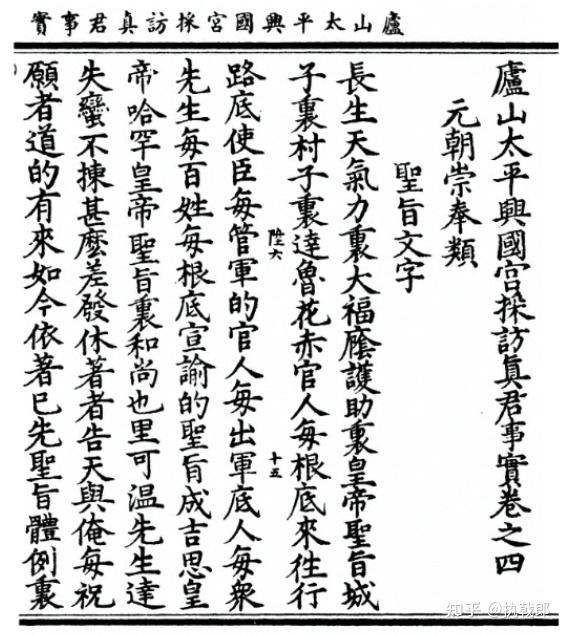 廬山太平興國宮採訪真君事實
廬山太平興國宮採訪真君事實卷之四
元朝崇奉類
聖旨文字
長生天氣力裏大福廕護助裏皇帝聖旨城
子裏村子裏達魯花赤官人每根底來往行
陛六
十五
路底使臣每管軍的官人每出軍底人每衆
先生每百姓每根底宣諭的聖旨成吉思皇
帝哈罕皇帝聖旨裏和尚也里可温先生達
失蠻不揀甚麽差發休著者告天與俺每祝
願者道的有來如今依著已先聖旨體例裏
知乎 @执戟郎